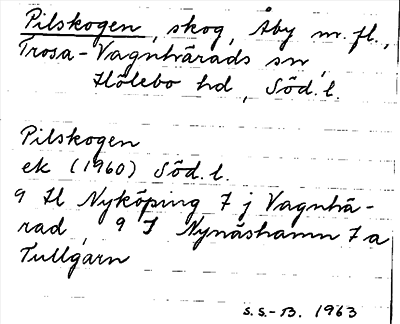 Pilskogen, skog, Åby m.fl.,
Trosa-Vagnhärads sn,
Hölebo hd, Söd.l.
Pilskogen
ek (1960) Söd.l.
9 H Nyköping 7 j Vagnhä-
rad, 9 I Nynäshamn 7 a
Tullgarn
S.S.-B. 1963